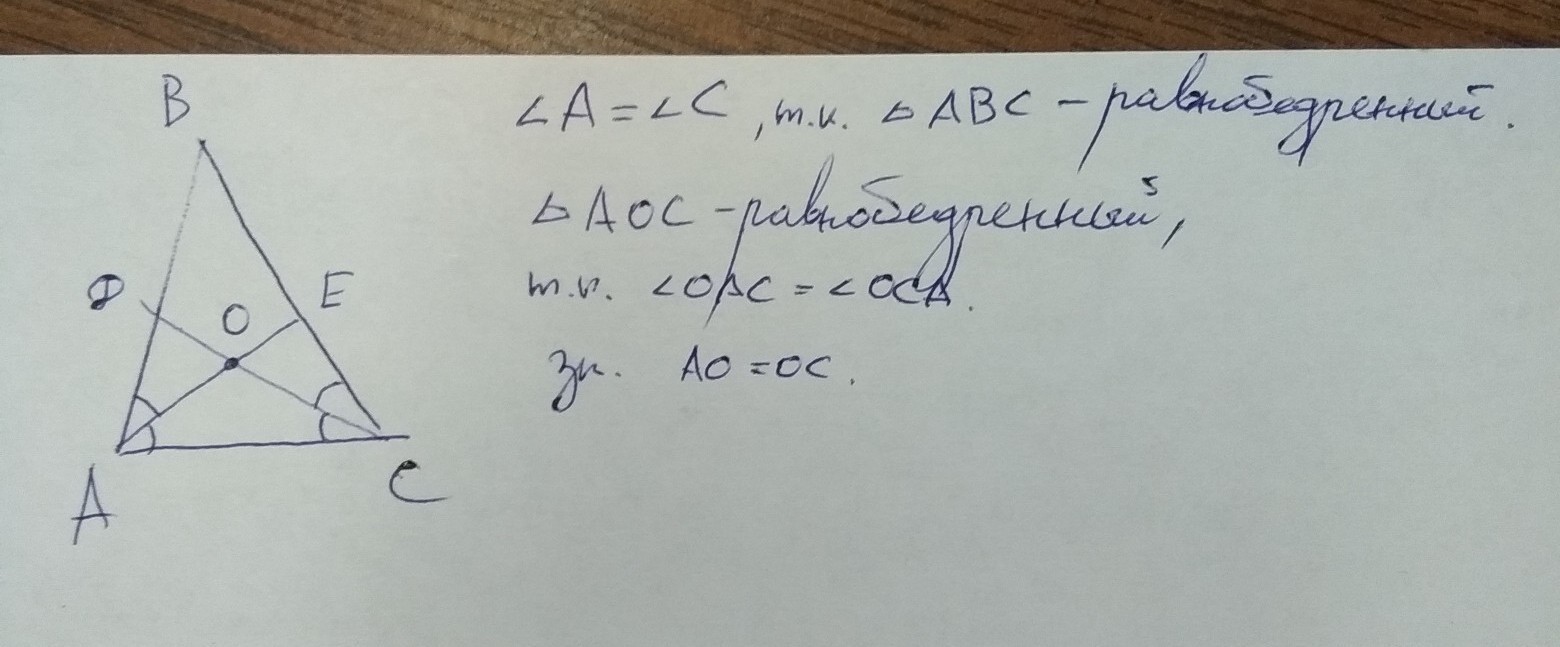 B
∠A = ∠C, т.к. △ABC – равнобедренный.
△AOC – равнобедренный,
Ф
E
т.к. ∠OAC = ∠OCA.
O
зн. AO = OC.
A
C